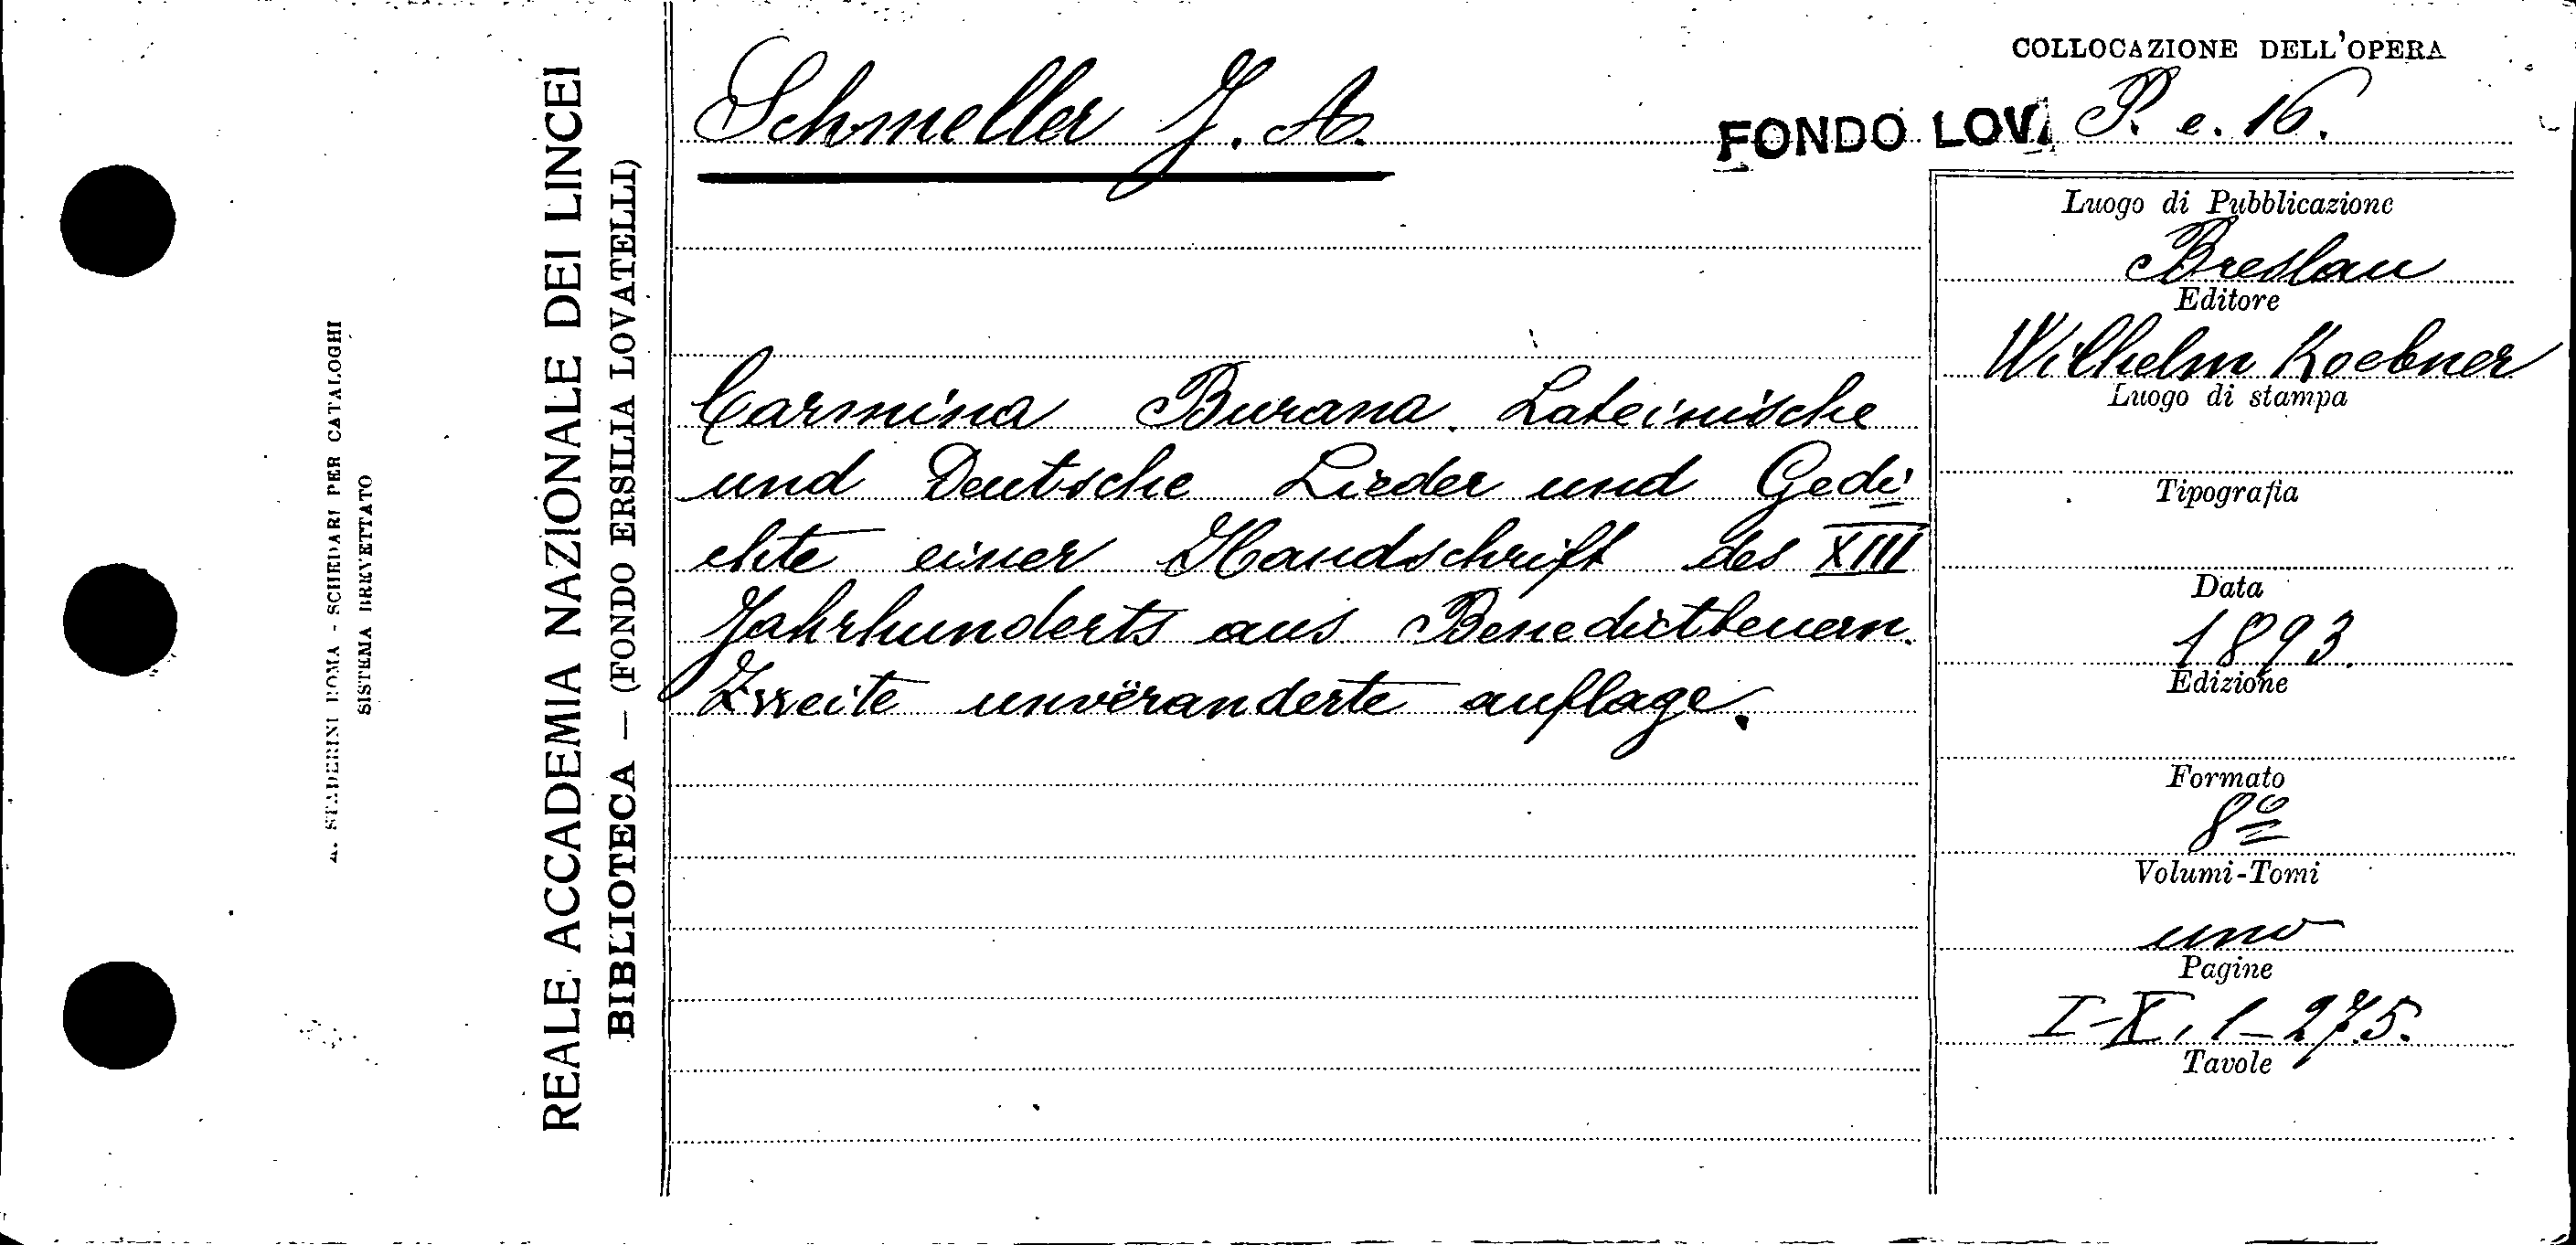 A. STADERINI ROMA - SCHEDARI PER CATALOGHI
SISTEMA BREVETTATO
REALE ACCADEMIA NAZIONALE DEI LINCEI
BIBLIOTECA — (FONDO ERSILIA LOVATELLI)
COLLOCAZIONE DELL'OPERA
Schmeller J. A.
FONDO LOV. P. e. 16.
Carmina Burana. Lateinische
und Deutsche Lieder und Gedi
chte einer Handschrift des XIII
Jahrhunderts aus Benedictbeuern.
Zweite unveränderte auflage.
Luogo di Pubblicazione
Breslau
Editore
Wilhelm Koebner
Luogo di stampa
Tipografia
Data
1893.
Edizione
Formato
8º
Volumi-Tomi
uno
Pagine
I-X, 1-275.
Tavole